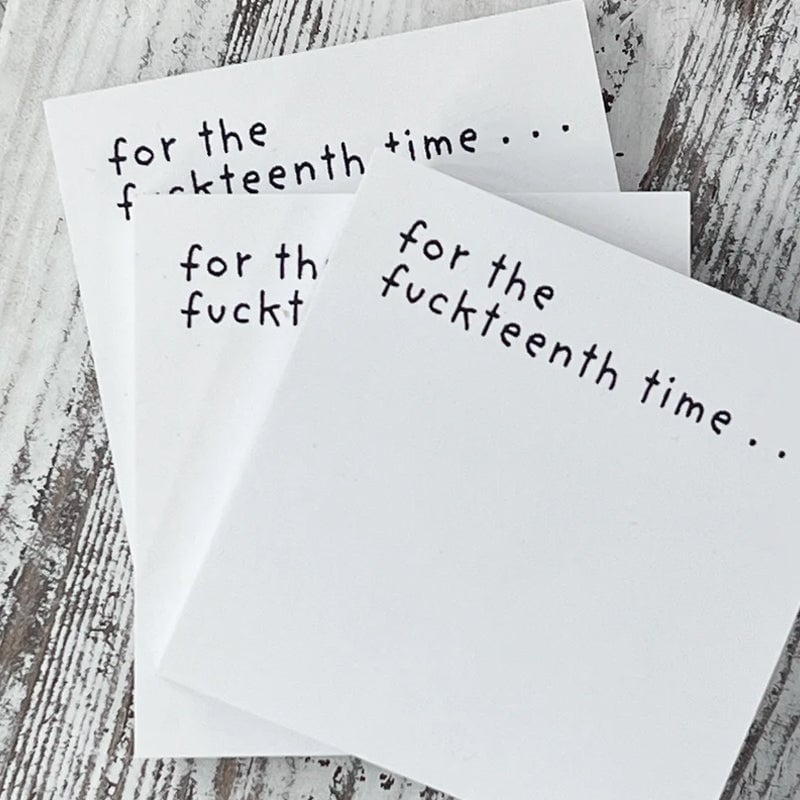 for the
fuckteenth time . . .
for th
fuckt
for the
fuckteenth time . .